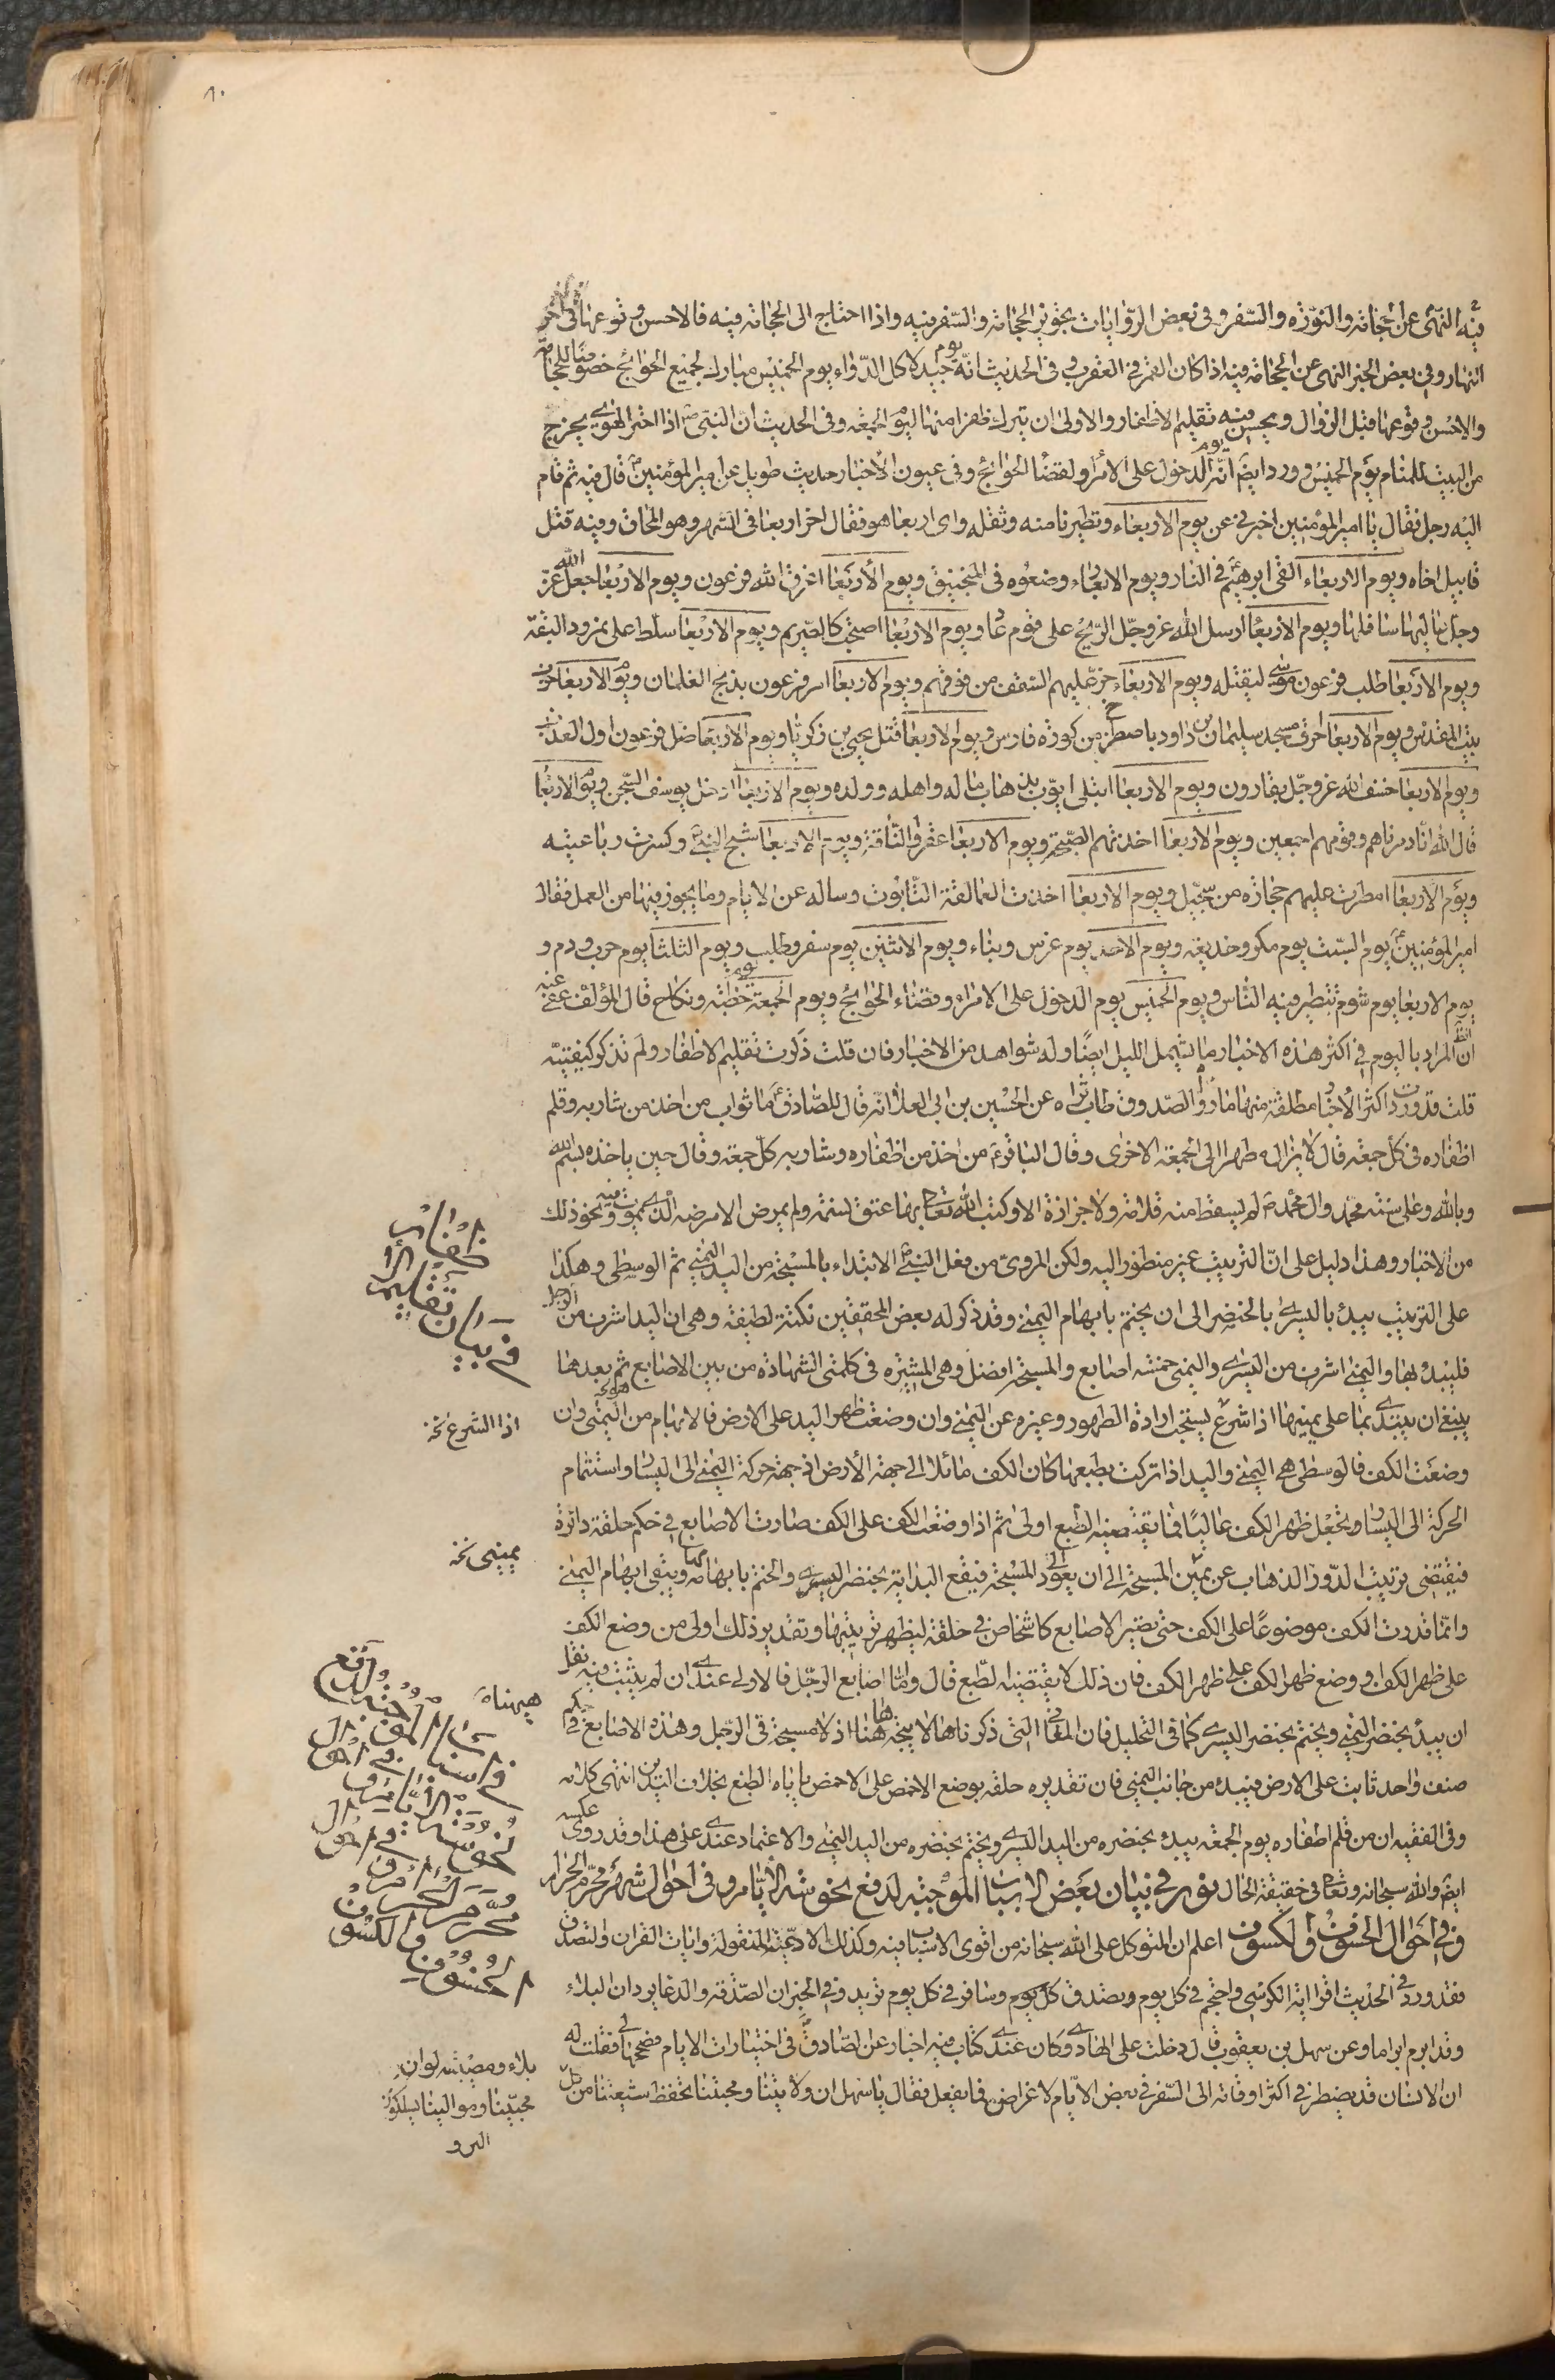 فيه النهى عن الحجامة والنورة والسفر وفى بعض الروايات تجويز الحجامة والسفر فيه واذا احتاج الى الحجامة فيه فالاحسن وقوعها فى اخر
النهار وفى بعض الخبر النهى عن الحجامة فيه اذا كان القمر فى العقرب وفى الحديث انه يوم جيد لاكل الدواء يوم الخميس مبارك لجميع الحوائج خصوصا للحجامة
والاحسن وقوعها قبل الزوال ويحسن فيه تقليم الاظفار والاولى ان يترك ظفرا منها ليوم الجمعة وفى الحديث ان النبى ص اذا اشتد الهوى يخرج
من البيت للمنام يوم الخميس وورد ايض انه يوم الدخول على الامراء ولقضا الحوائج وفى عيون الاخبار حديث طويل عن امير المؤمنين ع قال فيه ثم قام
اليه رجل فقال يا امير المؤمنين اخبرنى عن يوم الاربعاء وتطيرنا منه وثقله واى اربعا هو فقال اخر اربعا فى الشهر وهو المحاق وفيه قتل
قابيل اخاه ويوم الاربعاء القى ابرهيم فى النار ويوم الاربعاء وضعوه فى المنجنيق ويوم الاربعا اغرق الله فرعون ويوم الاربعا جعل الله عز
وجل عاليها سافلها ويوم الاربعا ارسل الله عز وجل الريح على قوم عاد ويوم الاربعا اصبحت كالصريم ويوم الاربعا سلط على نمرود البقة
ويوم الاربعا طلب فرعون موسى ليقتله ويوم الاربعاء خر عليهم السقف من فوقهم ويوم الاربعا امر فرعون بذبح الغلمان ويوم الاربعا خرب
بيت المقدس ويوم الاربعا احرق مسجد سليمان بن داود باصطخر من كورة فارس ويوم الاربعا قتل يحيى بن زكريا ويوم الاربعا ضل فرعون اول العذاب
ويوم الاربعا خسف الله عز وجل بقارون ويوم الاربعا ابتلى ايوب بذهاب ماله واهله وولده ويوم الاربعا ادخل يوسف السجن ويوم الاربعا
قال الله انا دمرناهم وقومهم اجمعين ويوم الاربعا اخذتهم الصيحة ويوم الاربعا عقروا الناقة ويوم الاربعا شج النبى ص وكسرت رباعيته
ويوم الاربعا امطرت عليهم حجارة من سجيل ويوم الاربعا اخذت العمالقة التابوت وساله عن الايام وما يجوز فيها من العمل فقال
امير المؤمنين ع يوم السبت يوم مكر وخديعة ويوم الاحد يوم غرس وبناء ويوم الاثنين يوم سفر وطلب ويوم الثلثا يوم حرب ودم و
يوم الاربعا يوم شوم تتطير فيه الناس ويوم الخميس يوم الدخول على الامراء وقضاء الحوائج ويوم الجمعة يوم خطبة ونكاح قال المؤلف عفى عنه
ان الظ المراد باليوم فى اكثر هذه الاخبار ما يشمل الليل ايضا وله شواهد من الاخبار فان قلت ذكرت تقليم الاظفار ولم تذكر كيفيته
قلت قد وردت اكثر الاخبار مطلقة منها ما رواه الصدوق طاب ثراه عن الحسين بن ابى العلا انه قال للصادق ع ما ثواب من اخذ من شاربه وقلم
اظفاره فى كل جمعة قال لا يزال طهرا الى الجمعة الاخرى وقال الباقر ع من اخذ من اظفاره وشاربه كل جمعة وقال حين ياخذه بسم الله
وبالله وعلى سنة محمد وال محمد ص لم يسقط منه قلامة ولا جزازة الا وكتب الله تعالى بها عتق نسمة ولم يمرض الا مرضه الذى يموت فيه ونحو ذلك
من الاخبار وهذا دليل على ان الترتيب غير منظور اليه ولكن المروى من فعل النبى ص الابتداء بالمسبحة من اليد اليمنى ثم الوسطى وهكذا
على الترتيب يبدء باليسرى بالخنصر الى ان يختم بابهام اليمنى وقد ذكر له بعض المحققين نكتة لطيفة وهى ان اليد اشرف من الرجل
فليبدء بها واليمنى اشرف من اليسرى واليمنى خمسة اصابع والمسبحة افضل وهى المشيرة فى كلمتى الشهادة من بين الاصابع ثم بعدها
ينبغى ان يبتدى بما على يمينها اذا شرع يستحب ادارة الطهور وغيره عن اليمنى وان وضعت ظهر اليد على الارض فالابهام هو من اليمنى وان
وضعت الكف فالوسطى هى اليمنى واليد اذا تركت بطبعها كان الكف مائلا الى جهة الارض اذ جهة حركة اليمنى الى اليسار واستتمام
الحركة الى اليسار ويجعل ظهر الكف عاليا فما يقتضيه الطبع اولى ثم اذا وضعت الكف على الكف صارت الاصابع فى حكم حلقة دائرة
فيقتضى ترتيب الدور الذهاب عن يمين المسبحة الى ان يعود الى المسبحة فيقع البداية بخنصر اليسرى والختم بابهامها ويبقى ابهام اليمنى
وانما قدرت الكف موضوعا على الكف حتى يصير الاصابع كاشخاص فى حلقة ليظهر ترتيبها وتقدير ذلك اولى من وضع الكف
على ظهر الكف او وضع ظهر الكف على ظهر الكف فان ذلك لا يقتضيه الطبع قال واما اصابع الرجل فالاولى عندى ان لم يثبت فيه نقل
ان يبدء بخنصر اليمنى ويختم بخنصر اليسرى كما فى التخليل فان المعانى التى ذكرناها لا يتجه هاهنا اذ لا مسبحة فى الرجل وهذه الاصابع فى حكم
صنف واحد ثابت على الارض فيبدء من جانب اليمنى فان تقديره حلقة بوضع الاخمص على الاخمص ياباه الطبع بخلاف اليدين انتهى كلامه
وفى الفقيه ان من قلم اظفاره يوم الجمعة يبدء بخنصره من اليد اليسرى ويختم بخنصره من اليد اليمنى والاعتماد عندى على هذا وقد روى عكسه
ايض والله سبحانه وتعالى فى حقيقة الحال نور فى بيان بعض الاسباب الموجبة لدفع نحوسة الايام وفى احوال شهر محرم الحرام
وفى احوال الخسوف والكسوف اعلم ان التوكل على الله سبحانه من اقوى الاسباب فيه وكذلك الادعية المنقولة وايات القران والتصدق
فقد ورد فى الحديث اقرا اية الكرسى واحتجم فى كل يوم وتصدق كل يوم وسافر فى كل يوم تريد وفى الخبر ان الصدقة والدعا يردان البلاء
وقد ابرم ابراما وعن سهل بن يعقوب قال دخلت على الهادى ع وكان عندى كتاب فيه اخبار عن الصادق ع فى اختيارات الايام فصححها لى فقلت له
ان الانسان قد يضطر فى اكثر اوقاته الى السفر فى بعض الايام لاغراض فما يفعل فقال يا سهل ان ولايتنا ومحبتنا تحفظ شيعتنا من كل
فى بيان تقليم الاظفار
اذا الشرع نخه
يمينى نخه
هيهناه
فى اسباب الموجبة لدفع
نحوسة الايام وفى احوال
محرم الحرام وفى احوال
الخسوف والكسوف
بلاء ومصيبة لو ان
محبينا وموالينا يسلكون
البر و
٨٠